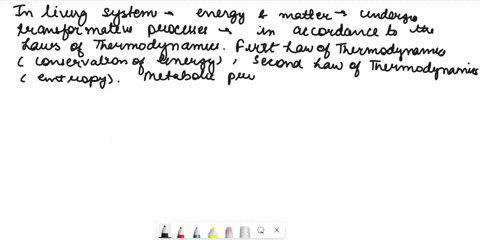 In living system → energy & matter → undergo
transformative processes → in accordance to the
Laws of Thermodynamics. First Law of Thermodynamics
(conservation of energy), Second Law of Thermodynamics
(entropy). Metabolic